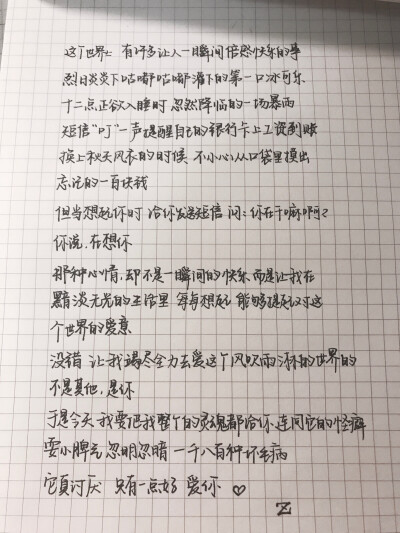 这个世界上 有许多让人一瞬间倍感快乐的事
烈日炎炎下咕嘟咕嘟灌下的第一口冰可乐
十二点正欲入睡时 忽然降临的一场暴雨
短信“叮”一声提醒自己的银行卡上工资到账
换上秋天风衣的时候 不小心从口袋里摸出
忘记的一百块钱
但当想起你时 给你发送短信 问：你在干嘛啊？
你说，在想你
那种心情，却不是一瞬间的快乐 而是让我在
黯淡无光的生活里 每每想起 能够提起对这
个世界的爱意
没错 让我竭尽全力去爱这个风吹雨淋的世界的
不是其他，是你
于是今天 我要把我整个的灵魂都给你 连同它的怪癖
耍小脾气 忽明忽暗 一千八百种坏毛病
它真讨厌 只有一点好 爱你 ♡
Z